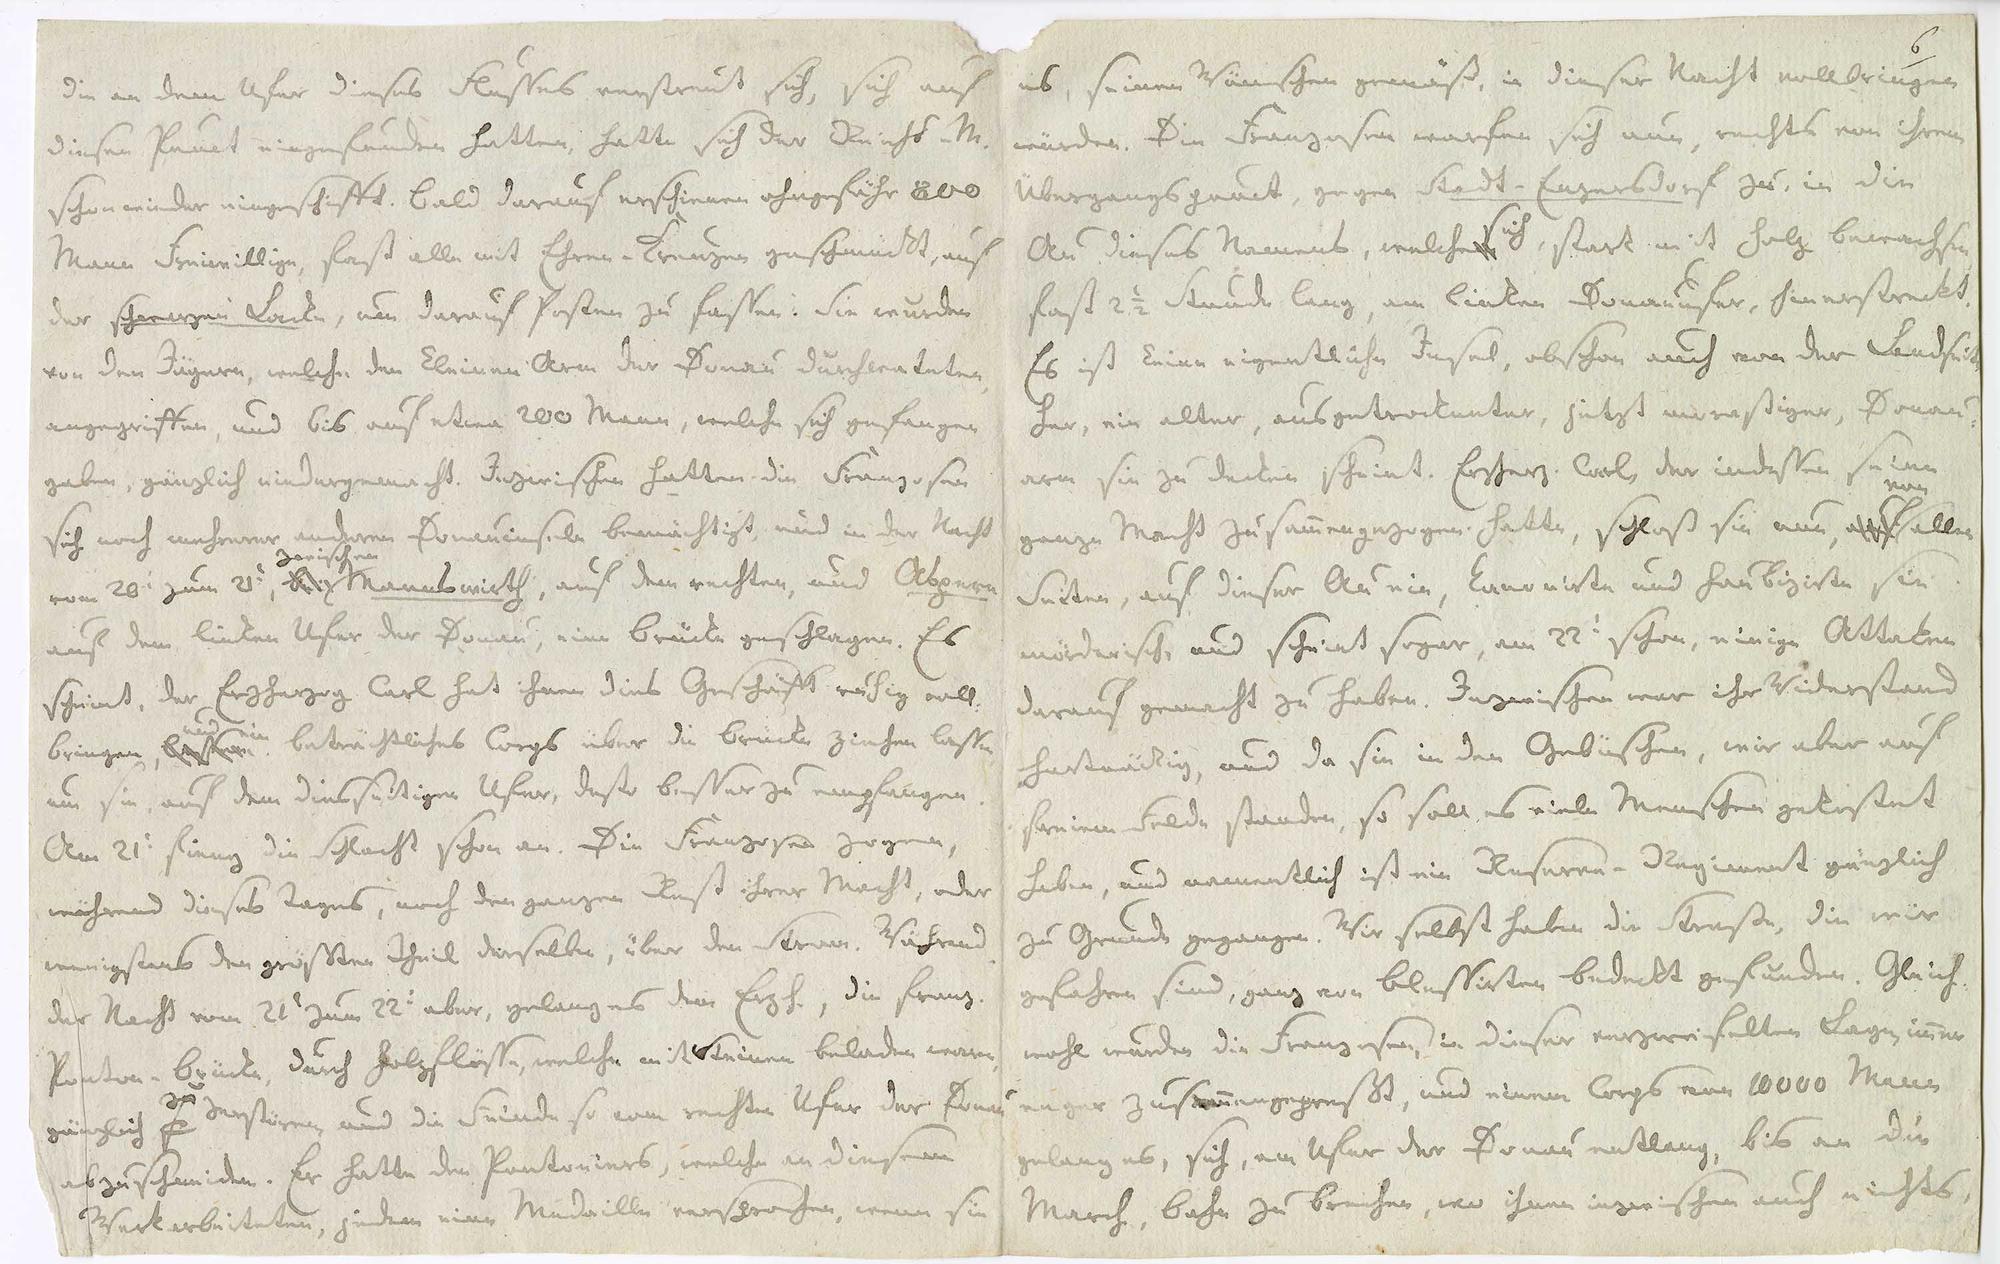 die an dem Ufer dieses Flusses verstreut sich, sich auf
diesen Punct eingefunden hatten, hatte sich der Reichs-M.
schon wieder eingeschifft. Bald darauf erschienen ohngefähr 800
Mann Freiwillige, fast alle mit Ehren-Kreuzen geschmückt, auf
der schwarzen Lacke, um darauf Posten zu fassen. Sie wurden
von den Jägern, welche den kleinen Arm der Donau durchwateten,
angegriffen, und bis auf etwa 200 Mann, welche sich gefangen
gaben, gänzlich niedergemacht. Inzwischen hatten die Franzosen
sich noch mehrerer anderer Donauinseln bemächtigt, und in der Nacht
vom 20t zum 21t, zwischen Mannswirth, auf dem rechten, und Aspern
auf dem linken Ufer der Donau, eine Brücke geschlagen. Es
scheint, der Erzherzog Carl hat ihnen dies Geschäfft ruhig voll-
bringen, und ein beträchtliches Corps über die Brücke ziehen lassen
um sie, auf dem diesseitigen Ufer, desto besser zu empfangen.
Am 21t fieng die Schlacht schon an. Die Franzosen zogen,
während dieses Tages, noch den ganzen Rest ihrer Macht, oder
wenigstens den größten Theil derselben, über den Strom. Während
der Nacht vom 21t zum 22t aber, gelang es dem Erzh., die franz.
Ponton-Brücke, durch Holzflöße, welche mit Steinen beladen waren,
gänzlich zu zerstören, und die Feinde so vom rechten Ufer der Donau
abzuschneiden. Er hatte den Pontoniers, welche an diesem
Werk arbeiteten, jedem eine Medaille versprochen, wenn sie
6
es, seinen Wünschen gemäß, in dieser Nacht vollbringen
würden. Die Franzosen warfen sich nun, rechts von ihrem
Übergangspunct, gegen Stadt-Enzersdorf zu, in die
Au dieses Namens, welche sich, stark mit Holz bewachsen
fast 2 1/2 Stunde lang, am linken Donauufer, hinerstreckt.
Es ist keine eigentliche Insel, obschon auch von der Landseite
her, ein alter, ausgetrockneter, jetzt morastiger, Donau-
arm sie zu decken scheint. Erzherz. Carl, der indessen seine
ganze Macht zusammengezogen hatte, schloß sie nun, von allen
Seiten, auf dieser Au ein, kanonirte und haubizirte sie
mörderisch und scheint sogar, am 22t schon, einige Attaken
darauf gemacht zu haben. Inzwischen war ihr Widerstand
hartnäckig, und da sie in den Gebüschen, wir aber auf
freiem Felde standen, so soll es viele Menschen gekostet
haben, und namentlich ist ein Reserve-Regiment gänzlich
zu Grunde gegangen. Wir selbst haben die Straße, die wir
gefahren sind, ganz von Blessirten bedeckt gefunden. Gleich-
wohl wurden die Franzosen, in dieser verzweifelten Lage, immer
enger zusammengepreßt, und einem Corps von 10000 Mann
gelang es, sich, am Ufer der Donau entlang, bis an die
March, Bahn zu brechen, wo ihnen inzwischen auch nichts,